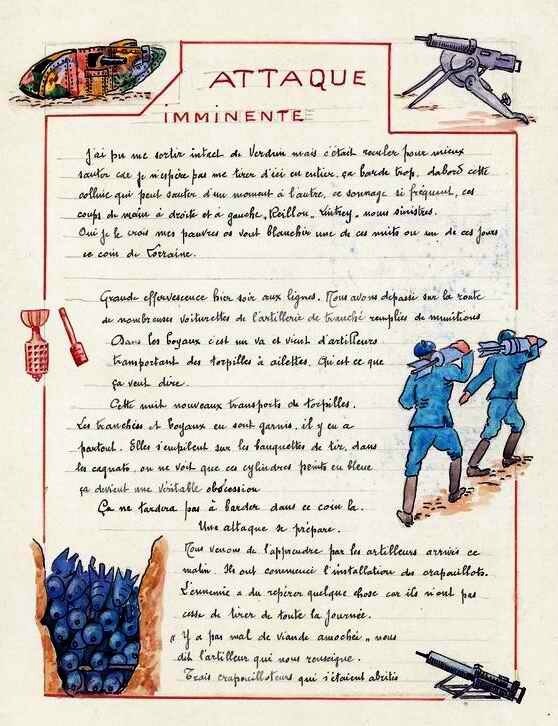 ATTAQUE
IMMINENTE
J'ai pu me sortir intact de Verdun mais c'était reculer pour mieux
sauter car je n'espère pas me tirer d'ici en entier, ça barde trop, dabord cette
colline qui peut sauter d'un moment à l'autre, ce sonnage si fréquent, ces
coups de main à droite et à gauche, Reillon, Leintrey, noms sinistres.
Oui je le crois mes pauvres os vont blanchir une de ces nuits ou un de ces jours
ce coin de Lorraine.
Grande effervescence hier soir aux lignes. Nous avons dépassé sur la route
de nombreuses voiturettes de l'artillerie de tranché remplies de munitions
Dans les boyaux c'est un va et vient d'artilleurs
transportant des torpilles à ailettes. Qu'est ce que
ça veut dire.
Cette nuit nouveaux transports de torpilles.
Les tranchées et boyaux en sont garnis, il y en a
partout. Elles s'empilent sur les banquettes de tir, dans
les cagnats, on ne voit que ces cylindres peints en bleue
ça devient une véritable obcession
Ça ne tardera pas à barder dans ce coin là.
Une attaque se prépare.
Nous venons de l'apprendre par les artilleurs arrivés ce
matin. Ils ont commencé l'installation des crapouillots.
L'ennemie a du repérer quelque chose car ils n'ont pas
cesse de tirer de toute la journée.
" Y a pas mal de viande amochée " nous
dit l'artilleur qui nous renseigne.
Trois crapouilloteurs qui s'étaient abrités